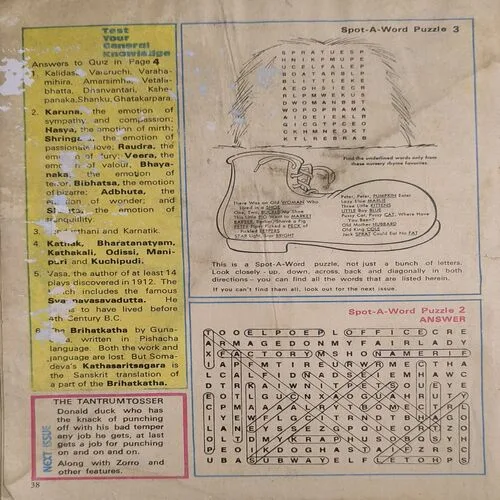 Test
Your
General
Knowledge
Answers to Quiz in Page 4
1. Kalidas, Vararuchi, Varaha-
mihira, Amarsimha, Vetala-
bhatta, Dhanvantari, Kshe-
panaka, Shanku, Ghatakarpara.
2. Karuna, the emotion of
sympathy and compassion;
Hasya, the emotion of mirth;
Shringara, the emotion of
passionate love; Raudra, the
emotion of fury; Veera, the
emotion of valour, Bhaya-
naka, the emotion of
terror, Bibhatsa, the emotion
of bizarre; Adbhuta, the
emotion of wonder; and
the emotion of
tranquility.
3. and Karnatik.
4. Kathak, Bharatanatyam,
Kathakali, Odissi, Mani-
puri and Kuchipudi.
5. Vasa, the author of at least 14
plays discovered in 1912. The
which includes the famous
Svapnavasavadutta. He
is to have lived before
4th Century B.C.
6. The Brihatkatha by Guna-
written in Pishacha
language. Both the work and
language are lost. But Soma-
deva's Kathasaritsagara is
the Sanskrit translation of
a part of the Brihatkatha.
THE TANTRUMTOSSER
Donald duck who has
the knack of punching
off with his bad temper
any job he gets, at last
gets a job for punching
on and on and on.
Along with Zorro and
other features.
NEXT ISSUE
38
Spot-A-Word Puzzle 3
SPRATUESP
HNIKPMUPE
UCELFALEP
BOATARBLP
BLITTLEKE
AEOHSIECR
RLPMWEKUS
DWOMANBBT
WOPOPRAMA
AIDEIEKLR
GICGTPCEO
CKHMNEOKT
KTLREBRAB
Find the underlined words only from
these nursery rhyme favourites.
There Was an Old WOMAN Who
Lived in a SHOE
One, Two, BUCKLE My Shoe
This Little PIG Went to MARKET
BARBER, Barber, Shave a Pig
PETER Piper Picked a PECK of
Pickled PEPPERS
STAR Light, Star BRIGHT
Peter, Peter, PUMPKIN Eater
Lazy Elsie MARLIE
Three Little KITTENS
LITTLE Boy BLUE
Pussy Cat, Pussy CAT, Where Have
You Been?
Old Mother HUBBARD
Old King COLE
Jack SPRAT Could Eat No FAT
This is a Spot-A-Word puzzle, not just a bunch of letters.
Look closely - up, down, across, back and diagonally in both
directions - you can find all the words that are listed herein.
If you can't find them all, look out for the next issue.
Spot-A-Word Puzzle 2
ANSWER
YOOELPOEPLOFFICECRE
ARMAGEDONMYFAIRLADY
XFACTORYMSHONAMERIF